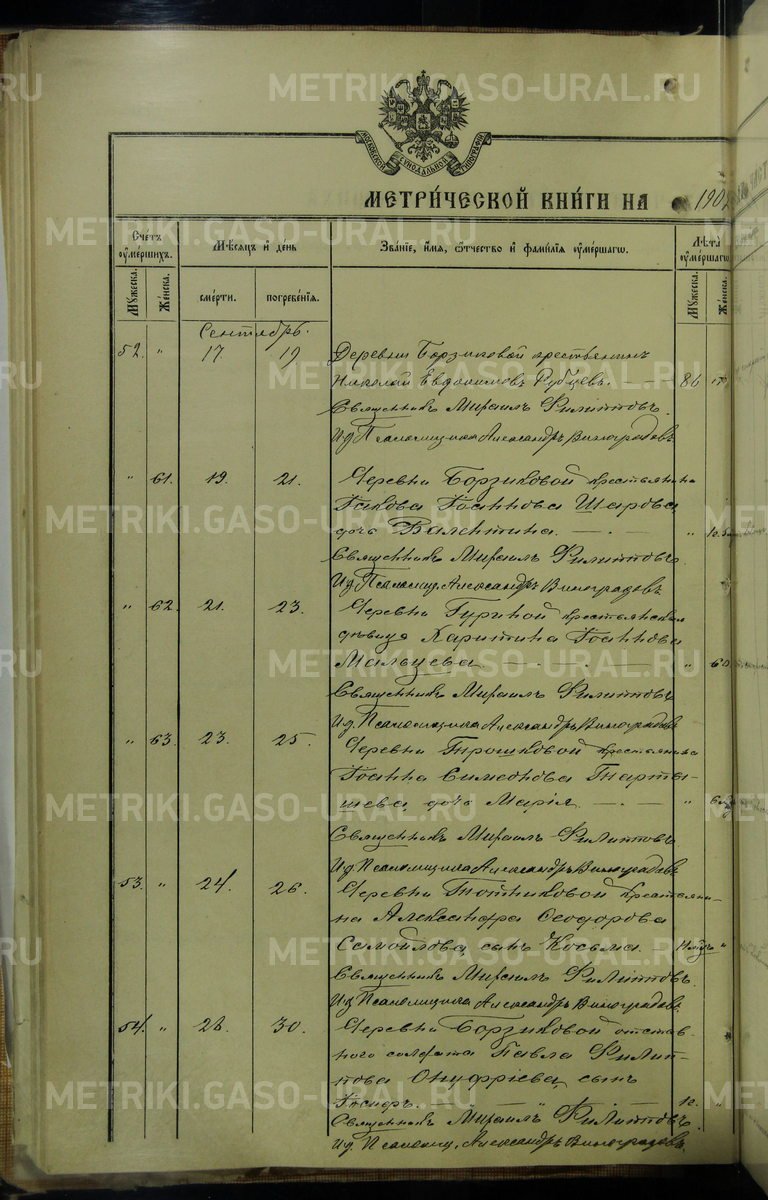 МОСКОВСКОЙ СѴНОДАЛЬНОЙ ТИПОГРАФІИ
МЕТРИ́ЧЕСКОЙ КНИ́ГИ НА 190
Счетъ ᲂу҆ме́ршихъ.
Мѣсяцъ и҆ день
Зва́ніе, и҆́мя, ѻ҆́тчество и҆ фамі́лія ᲂу҆ме́ршагѡ.
Лѣта̀ ᲂу҆ме́ршагѡ
Мꙋ́жеска.
Же́нска.
сме́рти.
погребе́нія.
Мꙋ́жеска.
Же́нска.
Сентябрь.
52. " 17 19 Деревни Борзиковой крестьянинъ
Николай Евдокимовъ Рубцевъ. — 86
Священникъ Михаилъ Филипповъ.
И.д. Псаломщика Александръ Виноградовъ
" 61. 19. 21. Деревни Борзиковой крестьянина
Іакова Іоаннова Шарова
дочь Валентина. — "
Священникъ Михаилъ Филипповъ.
И.д. Псаломщ. Александръ Виноградовъ
" 62. 21. 23. Деревни Гуриной крестьянская
дѣвица Харитина Іоаннова
Мальцева. — "
Священникъ Михаилъ Филипповъ
И.д. Псаломщика Александръ Виноградовъ
" 63. 23. 25. Деревни крестьянина
Іоанна Симеонова Парта-
шева, дочь Марія — "
Священникъ Михаилъ Филипповъ
И.д. Псаломщика Александръ Виноградовъ
53. " 24. 26. Деревни крестьяни-
на Александра Ѳеодорова
Самойлова, сынъ Косьма — "
Священникъ Михаилъ Филипповъ.
И.д. Псаломщика Александръ Виноградовъ.
54. " 28. 30. Деревни Борзиковой отстав-
ного солдата Павла Филип-
пова Онуфріева, сынъ
"
Священникъ Михаилъ Филипповъ.
И.д. Псаломщ. Александръ Виноградовъ.
METRIKI.GASO-URAL.RU